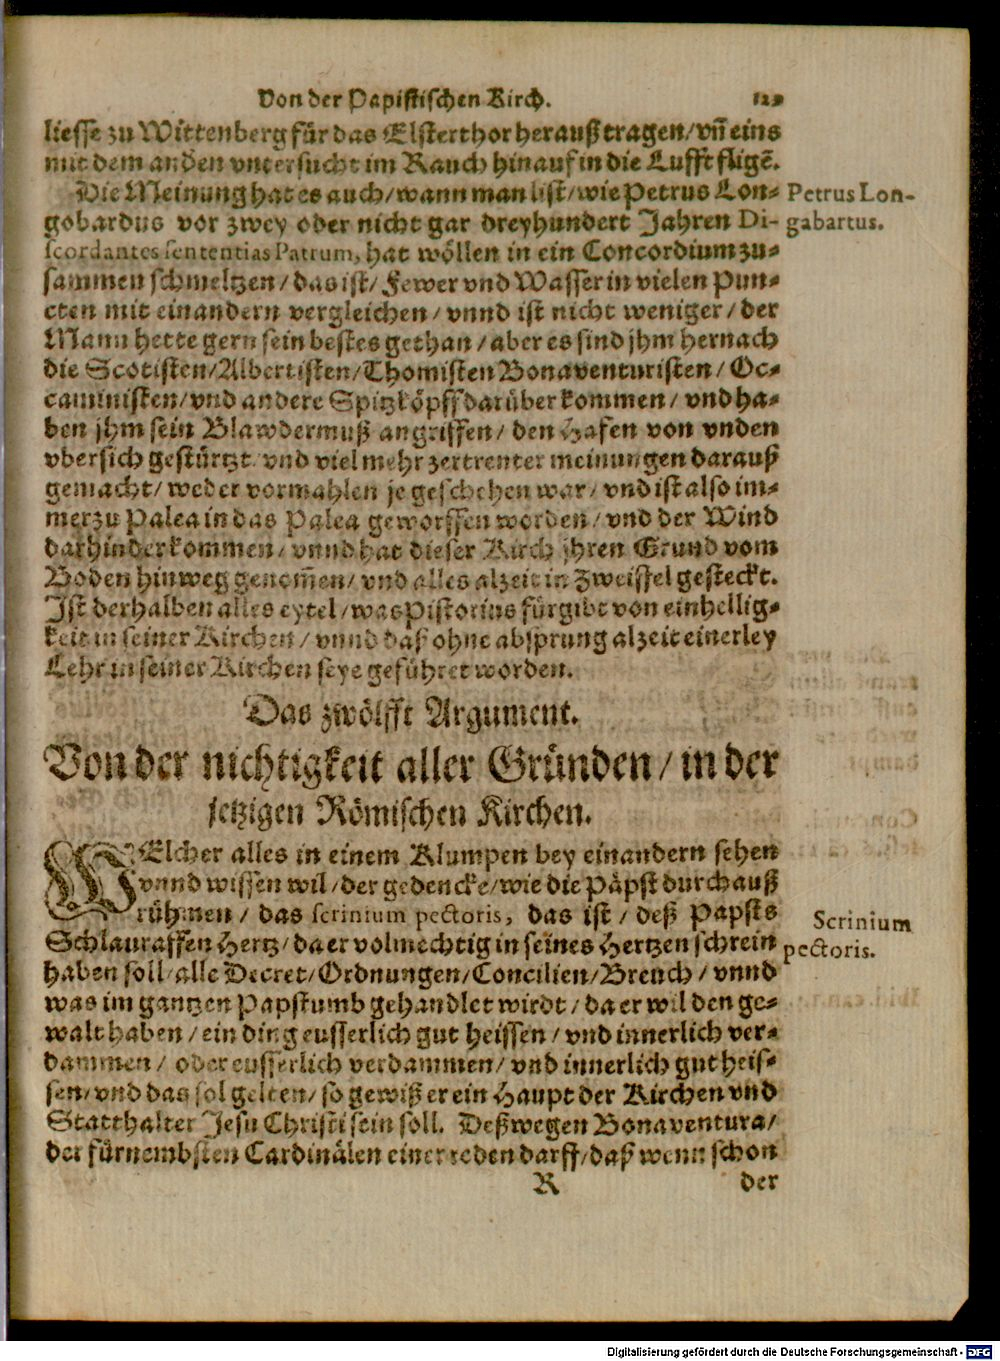 Von der Papistischen Kirch. 129
liesse zu Wittenberg für das Elsterthor herauß tragen/ vñ eins
mit dem anden vntersucht im Rauch hinauf in die Lufft fligē.
Die Meinung hat es auch/ wann man list/ wie Petrus Lon-
Petrus Lon-
gobardus vor zwey oder nicht gar dreyhundert Jahren Di-
gabartus.
scordantes sententias Patrum, hat wöllen in ein Concordium zu-
sammen schmeltzen/ das ist/ Fewer vnd Wasser in vielen Pun-
cten mit einandern vergleichen/ vnnd ist nicht weniger/ der
Mann hette gern sein bestes gethan/ aber es sind jhm hernach
die Scotisten/ Albertisten/ Thomisten Bonaventuristen/ Oc-
caministen/ vnd andere Spitzköpff darüber kommen/ vnd ha-
ben jhm sein Blawdermuß angriffen/ den Hafen von vnden
vbersich gestürtzt/ vnd viel mehr zertrenter meinungen darauß
gemacht/ weder vormahlen je geschehen war/ vnd ist also im-
merzu Palea in das Palea geworffen worden/ vnd der Wind
darhinder kommen/ vnnd hat dieser Kirch jhren Grund vom
Boden hinweg genom̄en/ vnd alles alzeit in Zweiffel gesteckt.
Ist derhalben alles eytel/ was Pistorius fürgibt von einhellig-
keit in seiner Kirchen/ vnnd daß ohne absprung alzeit einerley
Lehr in seiner Kirchen seye geführet worden.
Das zwölfft Argument.
Von der nichtigkeit aller Gründen/ in der
jetzigen Römischen Kirchen.
WElcher alles in einem Klumpen bey einandern sehen
vnnd wissen wil/ der gedencke/ wie die Päpst durchauß
rühmen/ das scrinium pectoris, das ist/ deß Papsts
Scrinium
Schlauraffen Hertz/ da er volmechtig in seines Hertzen schrein
pectoris.
haben soll/ alle Decret/ Ordnungen/ Concilien/ Breuch/ vnnd
was im gantzen Papstumb gehandlet wirdt/ da er wil den ge-
walt haben/ ein ding eusserlich gut heissen/ vnd innerlich ver-
dammen/ oder eusserlich verdammen/ vnd innerlich gut heis-
sen/ vnd das sol gelten/ so gewiß er ein Haupt der Kirchen vnd
Statthalter Jesu Christi sein soll. Deßwegen Bonaventura/
der fürnembsten Cardinälen einer reden darff/ daß wenn schon
R der
Digitalisierung gefördert durch die Deutsche Forschungsgemeinschaft - DFG